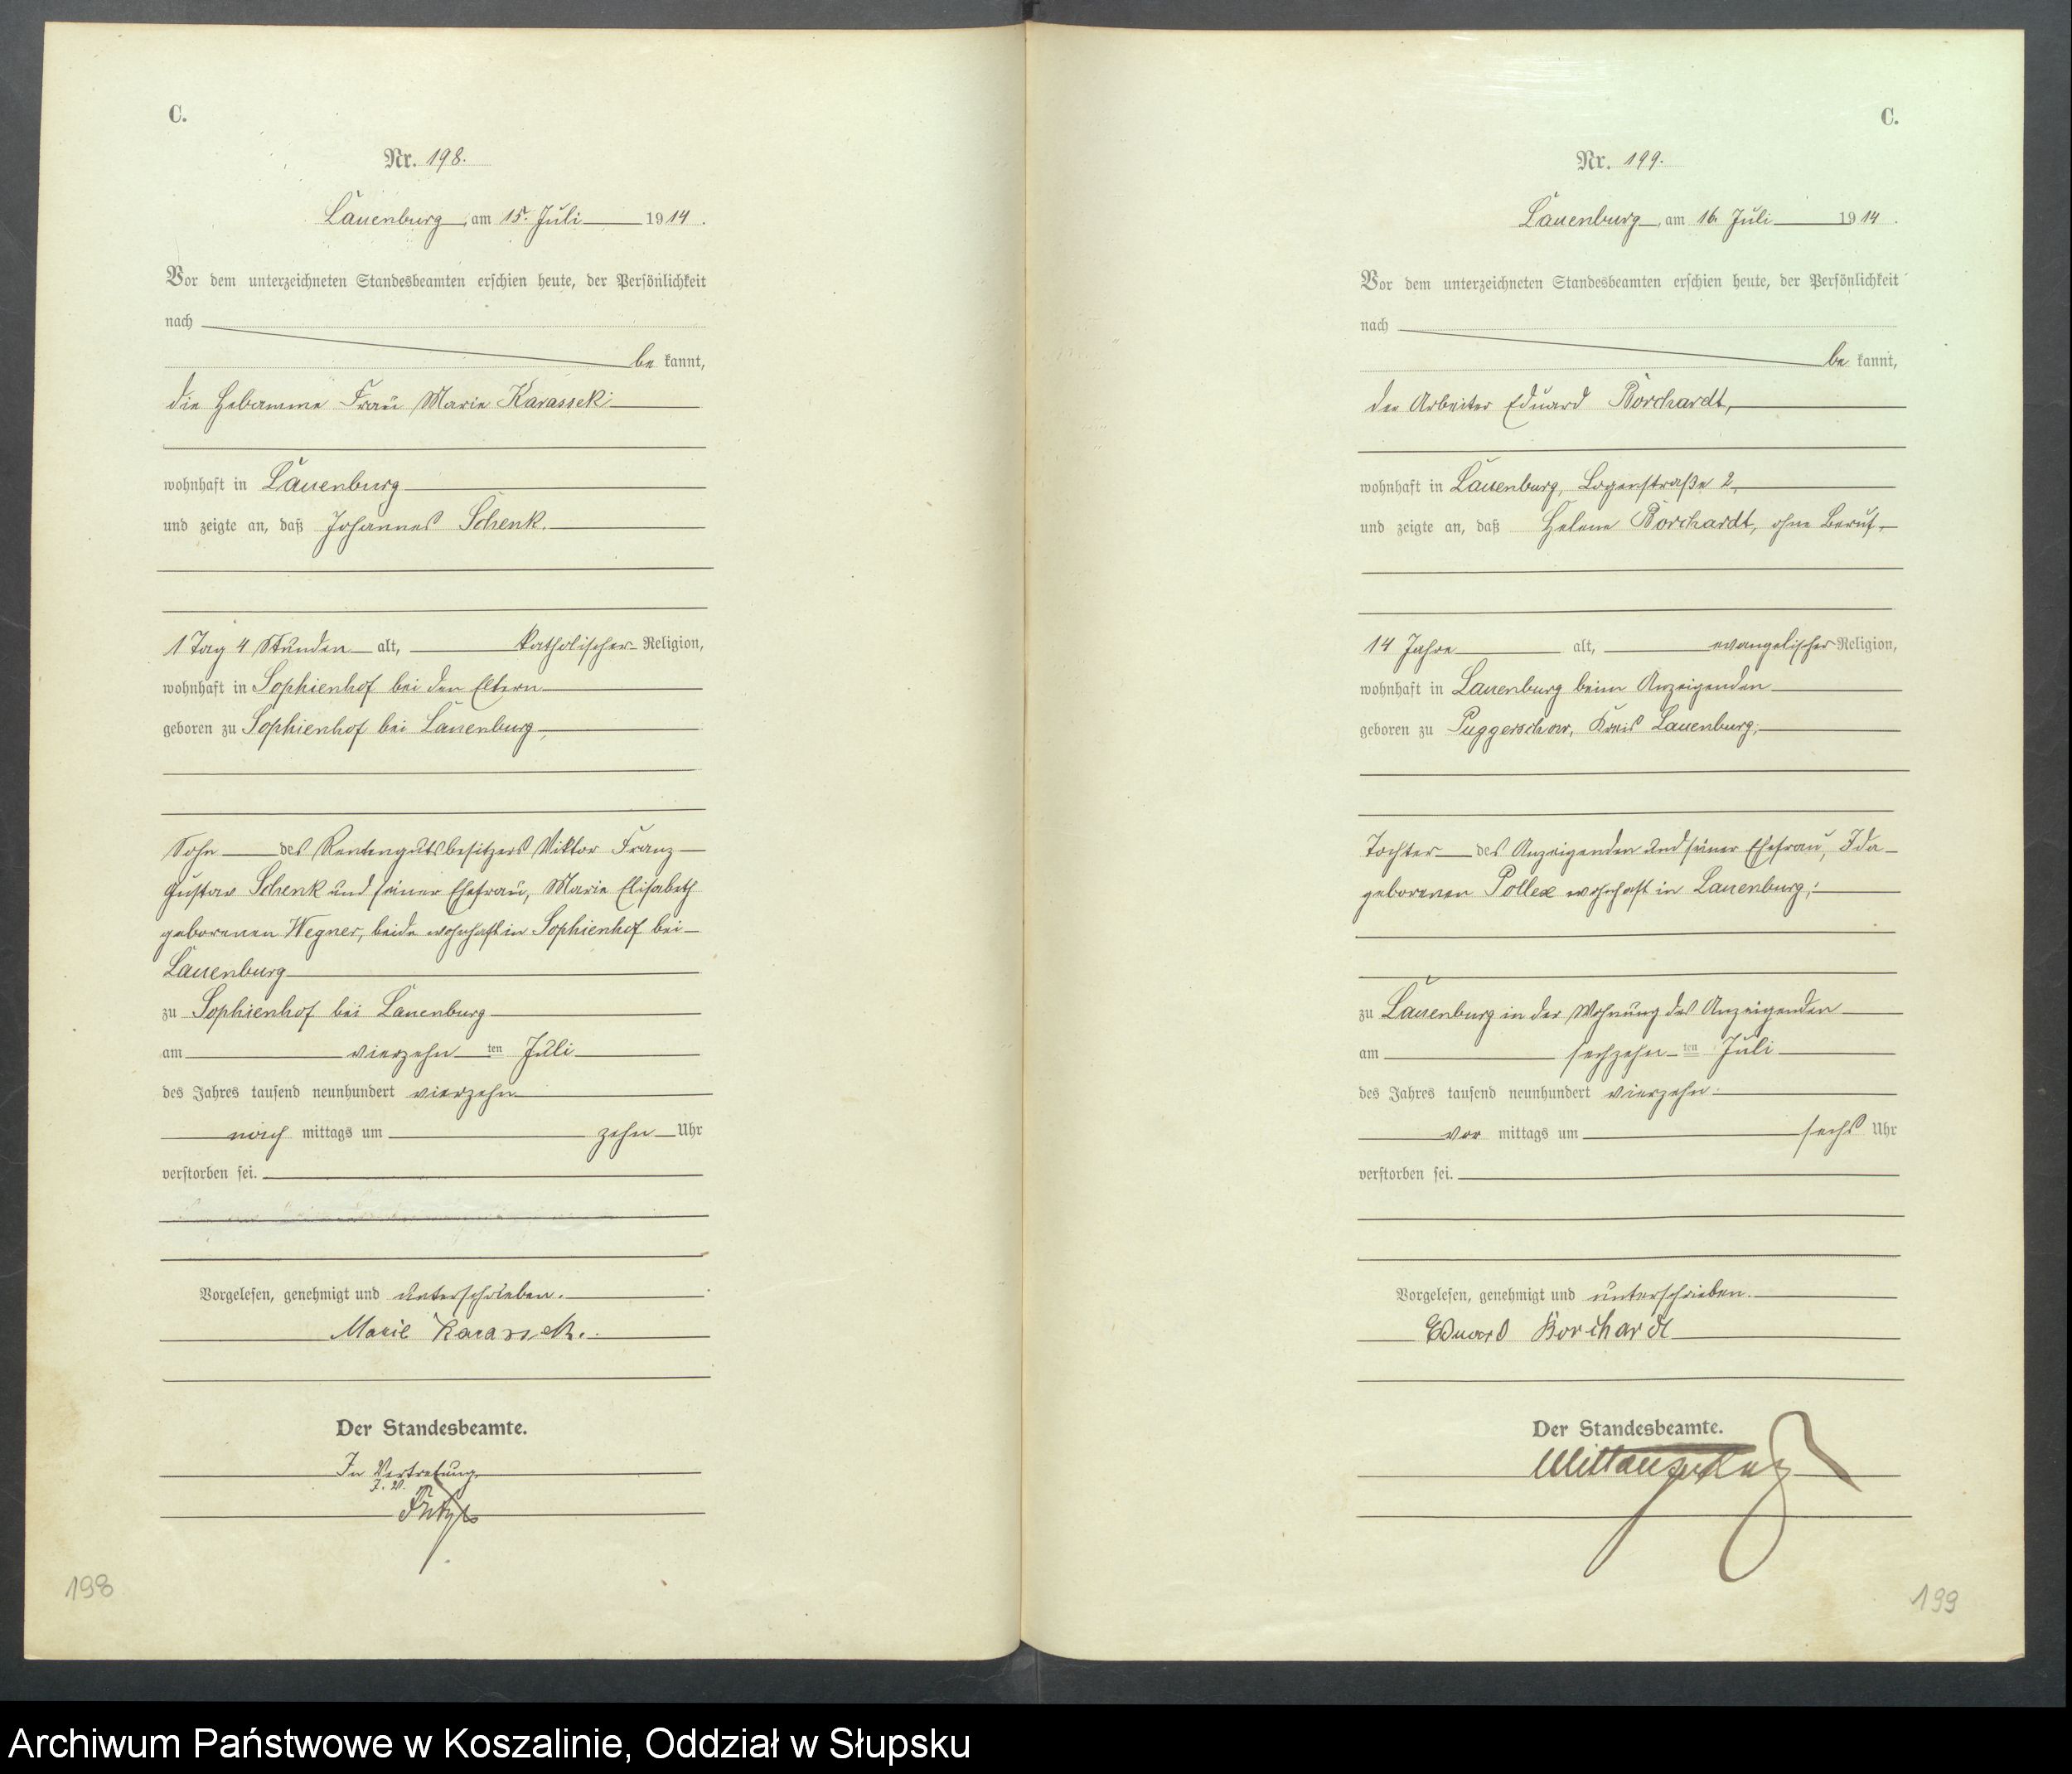 C.
Nr. 198.
Lauenburg, am 15. Juli 1914.
Vor dem unterzeichneten Standesbeamten erschien heute, der Persönlichkeit
nach
be kannt,
die Hebamme Frau Marie Karassek
wohnhaft in Lauenburg
und zeigte an, daß Johannes Schenk.
1 Tag 4 Stunden alt, katholischer Religion,
wohnhaft in Sophienhof bei den Eltern
geboren zu Sophienhof bei Lauenburg,
Sohn des Rentengutsbesitzers Viktor Franz
Gustav Schenk und seiner Ehefrau, Marie Elisabeth
geborenen Wegner, beide wohnhaft in Sophienhof bei
Lauenburg
zu Sophienhof bei Lauenburg
am vierzehn ten Juli
des Jahres tausend neunhundert vierzehn
nach mittags um zehn Uhr
verstorben sei.
Vorgelesen, genehmigt und unterschrieben.
Marie Karassek.
Der Standesbeamte.
In Vertretung.
J. V.
198
C.
Nr. 199.
Lauenburg, am 16. Juli 1914.
Vor dem unterzeichneten Standesbeamten erschien heute, der Persönlichkeit
nach
be kannt,
der Arbeiter Eduard Borchardt,
wohnhaft in Lauenburg, Logenstraße 2,
und zeigte an, daß Helene Borchardt, ohne Beruf,
14 Jahre alt, evangelischer Religion,
wohnhaft in Lauenburg beim Anzeigenden
geboren zu Puggerschow, Kreis Lauenburg,
Tochter des Anzeigenden und seiner Ehefrau, Ida
geborenen Pollex wohnhaft in Lauenburg,
zu Lauenburg in der Wohnung des Anzeigenden
am sechzehn ten Juli
des Jahres tausend neunhundert vierzehn
vor mittags um sechs Uhr
verstorben sei.
Vorgelesen, genehmigt und unterschrieben.
Eduard Borchardt
Der Standesbeamte.
199
Archiwum Państwowe w Koszalinie, Oddział w Słupsku